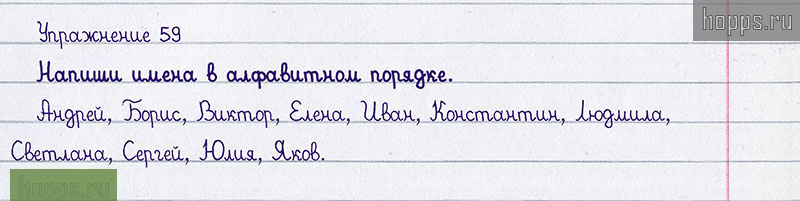 hopps.ru
Упражнение 59
Напиши имена в алфавитном порядке.
Андрей, Борис, Виктор, Елена, Иван, Константин, Людмила,
Светлана, Сергей, Юлия, Яков.
hopps.ru